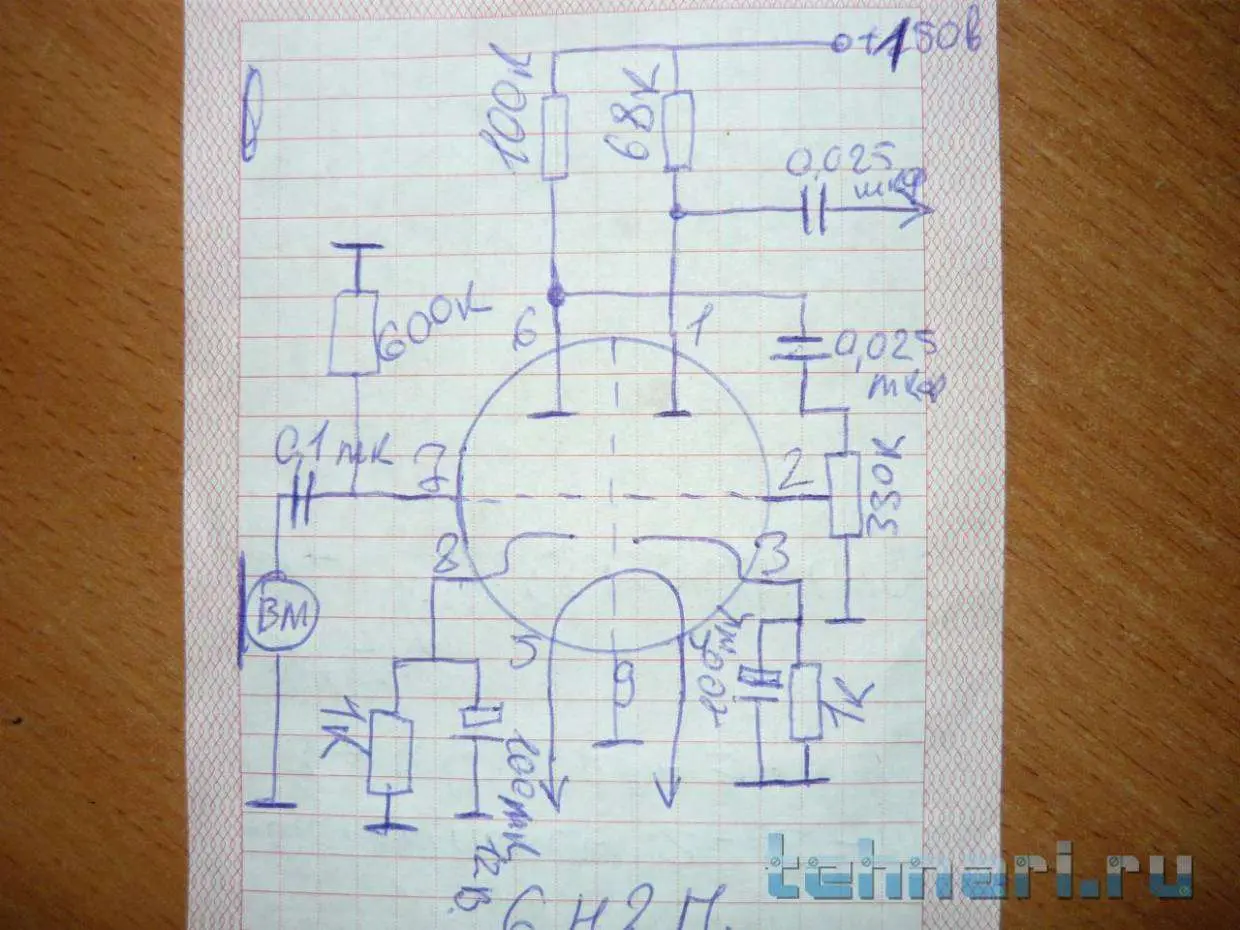 +150В
100К
68К
0,025
мкф
600К
6
1
0,025
мкф
0,1 мк
7
2
330К
8
3
ВМ
5
4
9
1К
100 мк
12В.
100 мк
1К
6Н2П.
tehnari.ru